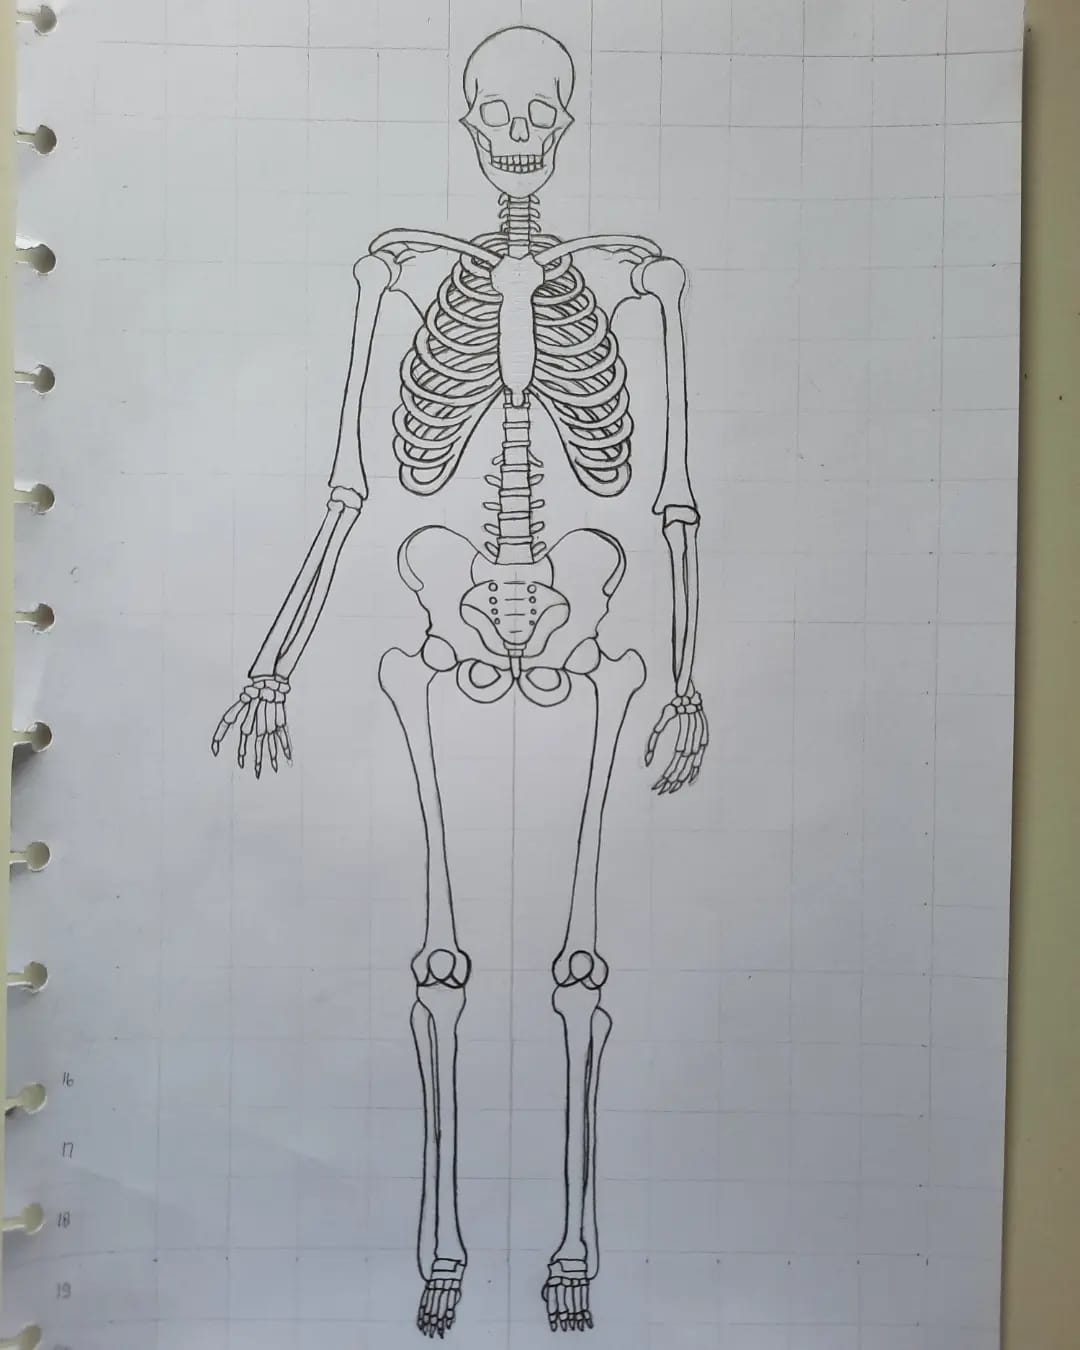 16
17
18
19